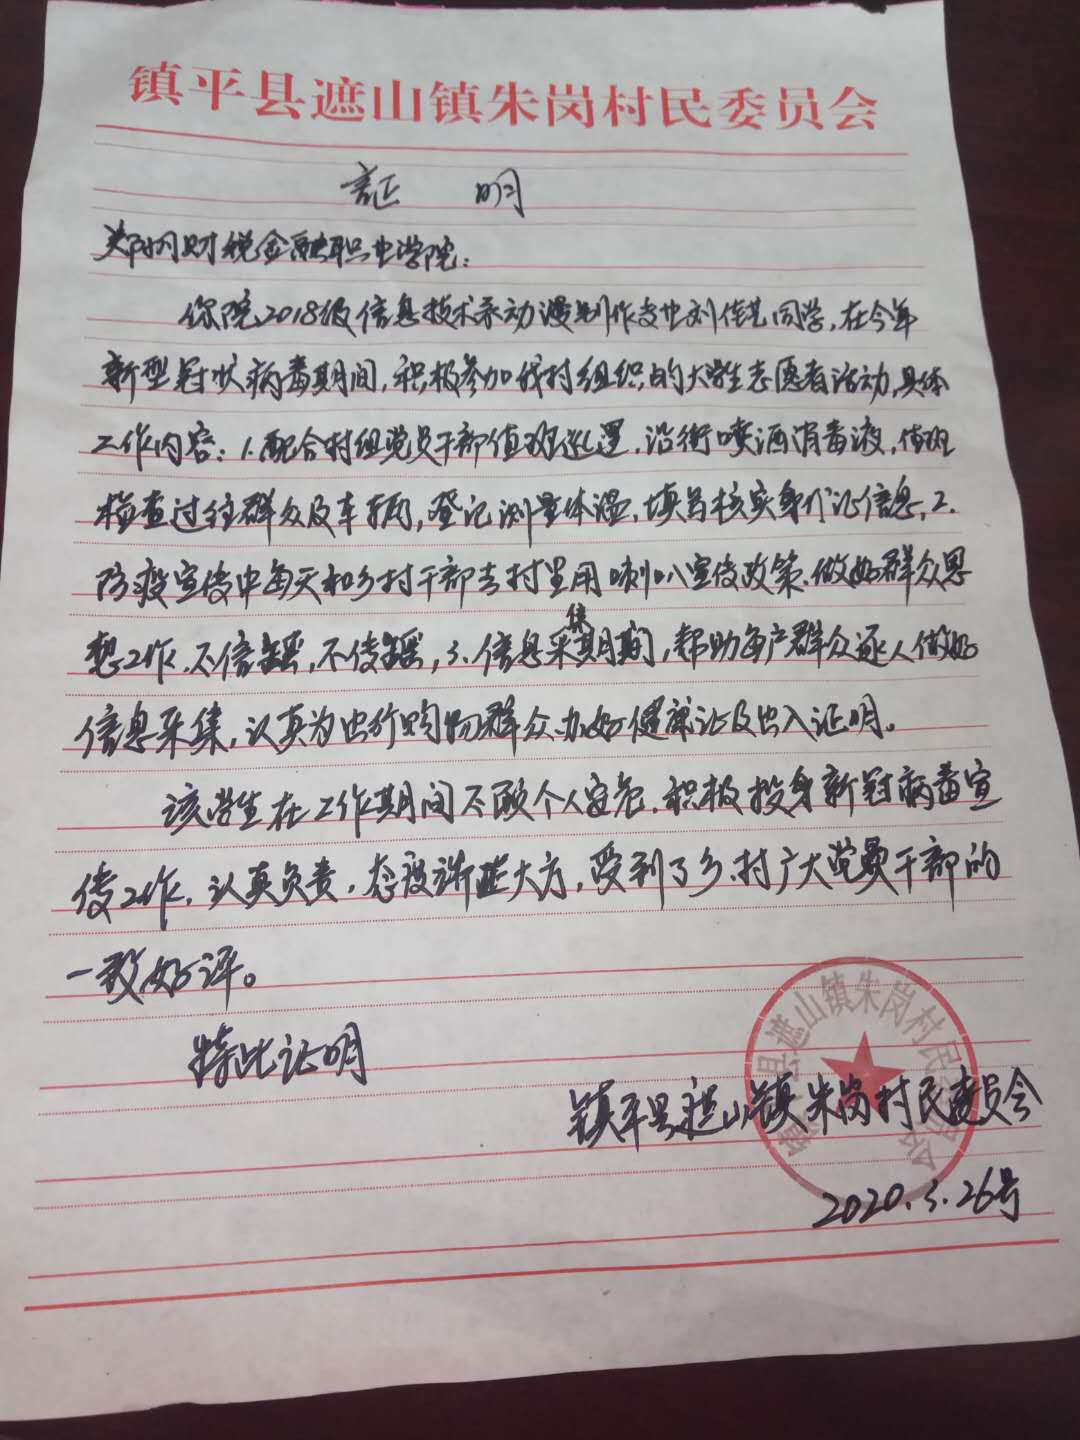 镇平县遮山镇朱岗村民委员会
証 明
郑州财税金融职业学院：
你院2018级信息技术系动漫制作专业刘佳艺同学，在今年
新型冠状病毒期间，积极参加我村组织的大学生志愿者活动，具体
工作内容：1.配合村组党员干部值班巡逻，沿街喷洒消毒液，值班
检查过往群众及车辆，登记测量体温，填写核实身份证信息，2.
防疫宣传中每天和乡村干部去村里用喇叭宣传政策、做好群众思
想工作、不信谣，不传谣，3.信息采集期间，帮助每户群众逐人做好
信息采集，认真为出行购物群众办好健康证及出入证明。
该学生在工作期间不顾个人安危、积极投身新冠病毒宣
传工作，认真负责，态度谦逊大方，受到了乡、村广大党员干部的
一致好评。
特此证明
镇平县遮山镇朱岗村民委员会
镇平县遮山镇朱岗村民委员会
2020.3.26号